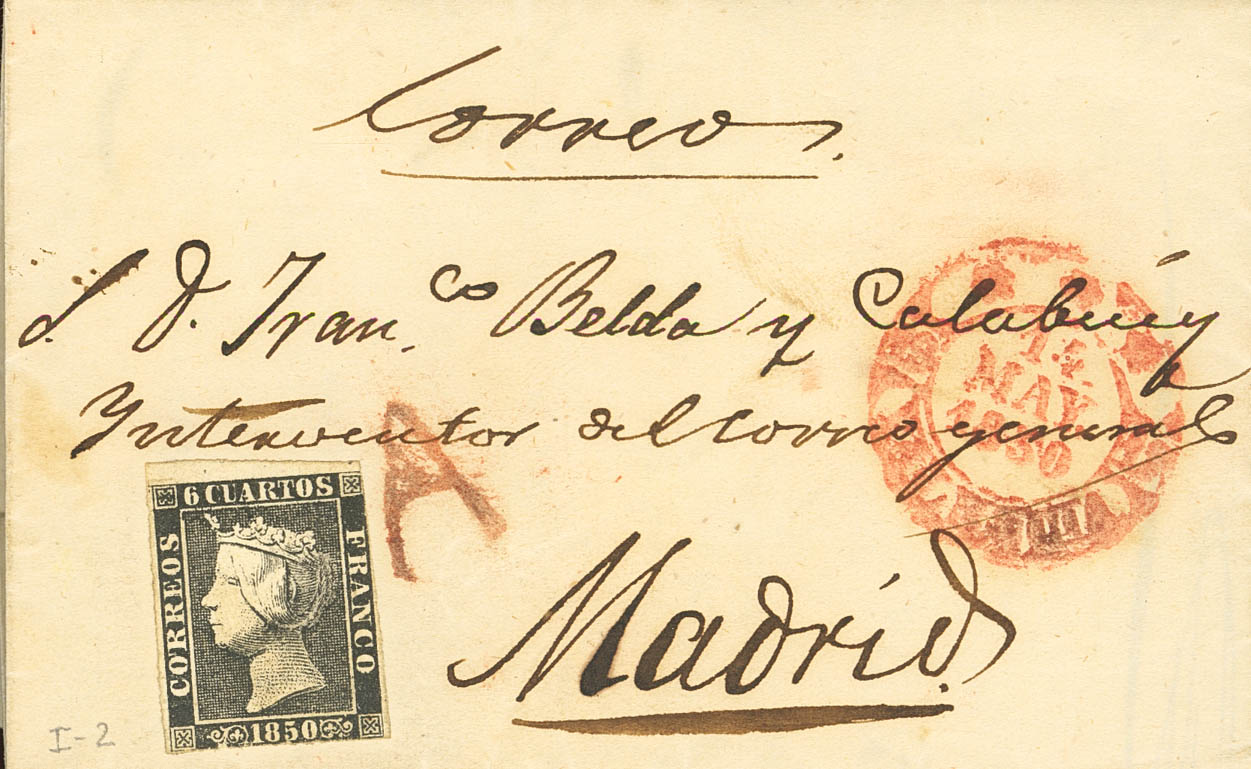 Correos.
S. D. Fran.co Belda y Calabuig
Ynterventor del correo general
Madrid.
A
12
MAY
1850
6 CUARTOS
CORREOS
FRANCO
1850
I-2